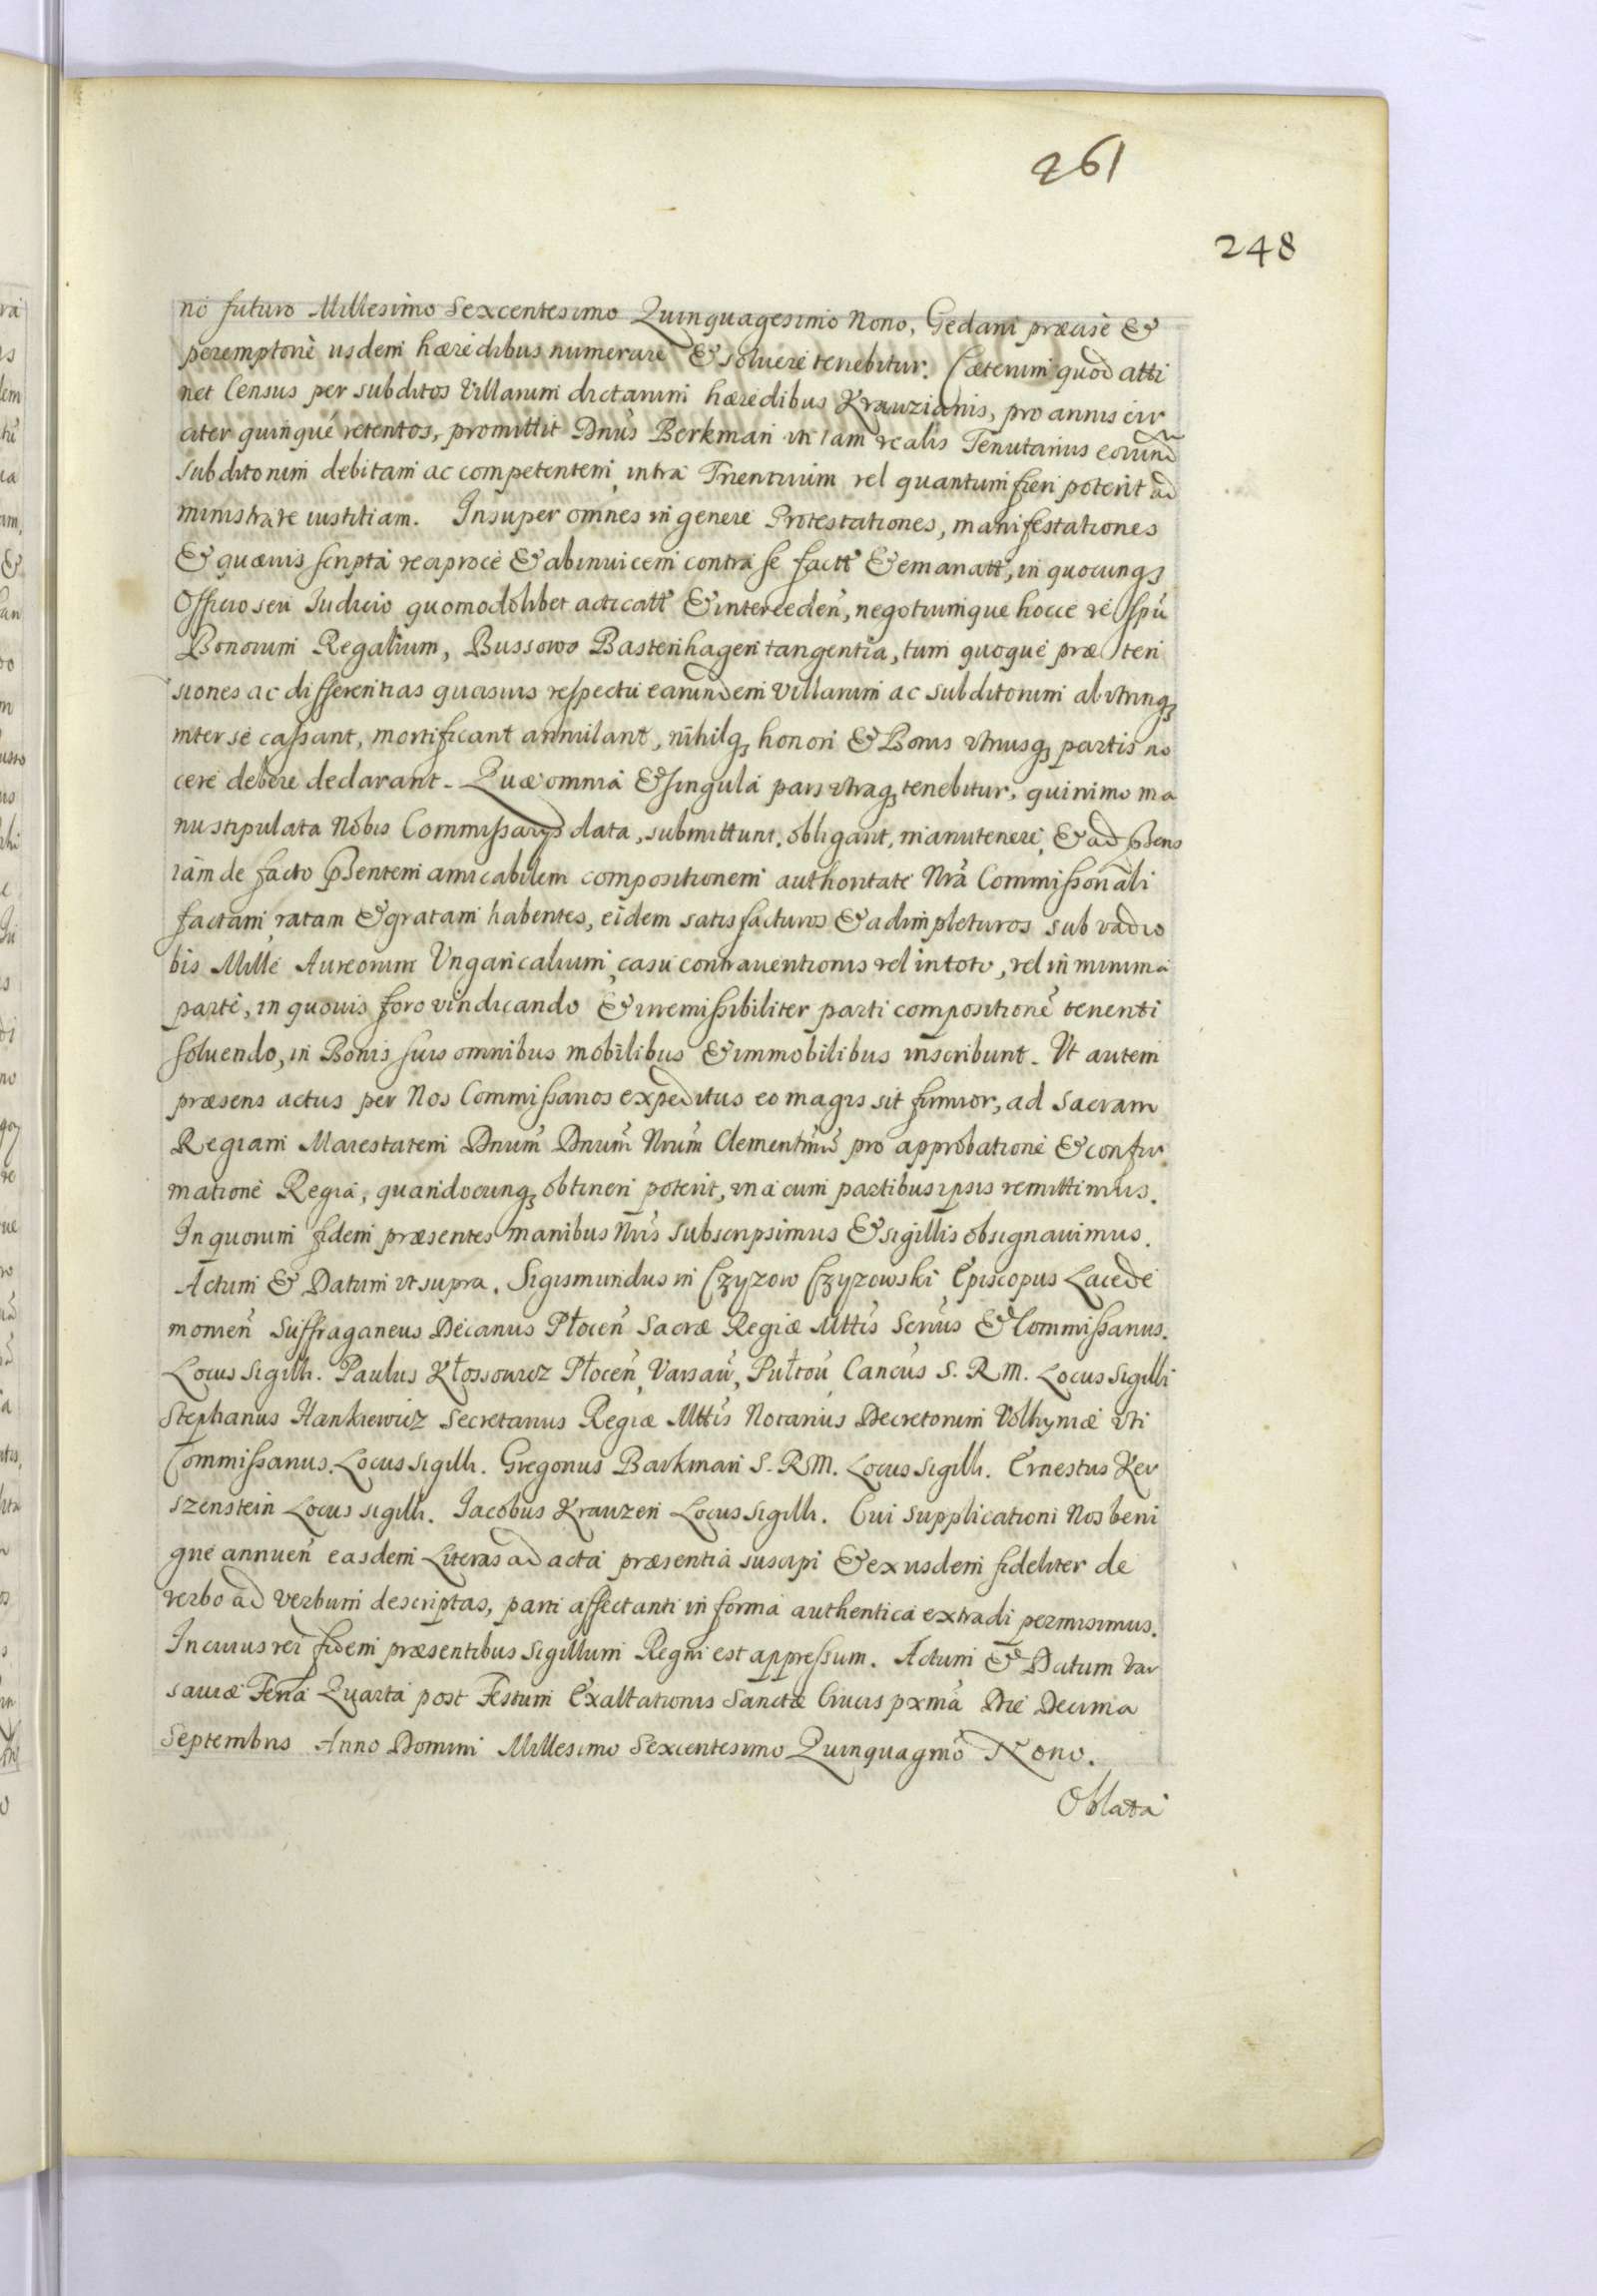 261
248
no futuro Millesimo Sexcentesimo Quinquagesimo Nono, Gedani præcise &
peremptorie ijsdem hæredibus numerare & soluere tenebitur. Cæterum quod atti
net Census per subditos Villarum dictarum hæredibus Krauzianis, pro annis cir
citer quinque retentos, promittit Dnus Berkman uti iam realis Tenutarius eorund
subditorum debitam ac competentem intra Triennium vel quantum fieri poterit ad
ministrare iustitiam. Insuper omnes in genere Protestationes, manifestationes
& quævis scripta reciproce & abinuicem contra se factt & emanatt, in quocunqꝫ
Officio seu Iudicio quomodolibet acticatt & interceden̄, negotiumque hocce re\sptu
Bonorum Regalium, Bussowo Bastenhagen tangentia, tum quoque præ\ten
siones ac differentias quasuis respectu earundem Villarum ac subditorum ab utrinqꝫ
inter se cassant, mortificant annulant, nihilqꝫ honori & Bonis utriusqꝫ partis no
cere debere declarant. Quæ omnia & singula pars utraqꝫ tenebitur, quinimo ma
nu stipulata Nobis Commissarijs data, submittunt, obligant, manutenere, & ad p̄sens
iam de facto p̄sentem amicabilem compositionem authoritate Nrā Commissoriali
factam, ratam & gratam habentes, eidem satisfacturos & adimpleturos sub vadio
bis Mille Aureorum Ungaricalium, casu contrauentionis vel in toto, vel in minima
parte, in quouis foro vindicando & irremissibiliter parti compositionē tenenti
soluendo, in Bonis suis omnibus mobilibus & immobilibus inscribunt. Ut autem
præsens actus per Nos Commissarios expeditus eo magis sit firmior, ad Sacram
Regiam Maiestatem Dnum Dnum Nrum Clementmū pro approbatione & confir
matione Regia, quandocunqꝫ obtineri poterit, una cum partibus ipsis remittimus.
In quorum fidem præsentes manibus Nris subscripsimus & sigillis obsignauimus.
Actum & Datum ut supra. Sigismundus in Czyzow Czyzowski Episcopus Lacede
monien̄ Suffraganeus Decanus Płocen̄ Sacræ Regiæ Mttis Scrius & Commissarius.
Locus Sigilli. Paulus Kłossowicz Płocen̄, Varsau, Pułtou Cancus S. R. M. Locus Sigilli
Stephanus Hankiewicz Secretarius Regiæ Mttis Notarius Decretorum Volhyniæ uti
Commissarius. Locus Sigilli. Gregorius Barkman S. R. M. Locus Sigilli. Ernestus Ker
szenstein Locus sigilli. Iacobus Krauzen Locus Sigilli. Cui supplicationi Nos beni
gne annuen̄ easdem Literas ad acta præsentia suscipi & ex ijsdem fideliter de
verbo ad verbum descriptas, parti affectanti in forma authentica extradi permisimus.
In cuius rei fidem præsentibus Sigillum Regni est appressum. Actum & Datum Var
sauiæ Feria Quarta post Festum Exaltationis Sanctæ Crucis pxma Die Decima
Septembris Anno Domini Millesimo Sexcentesimo Quinquagmo Nono.
Oblata